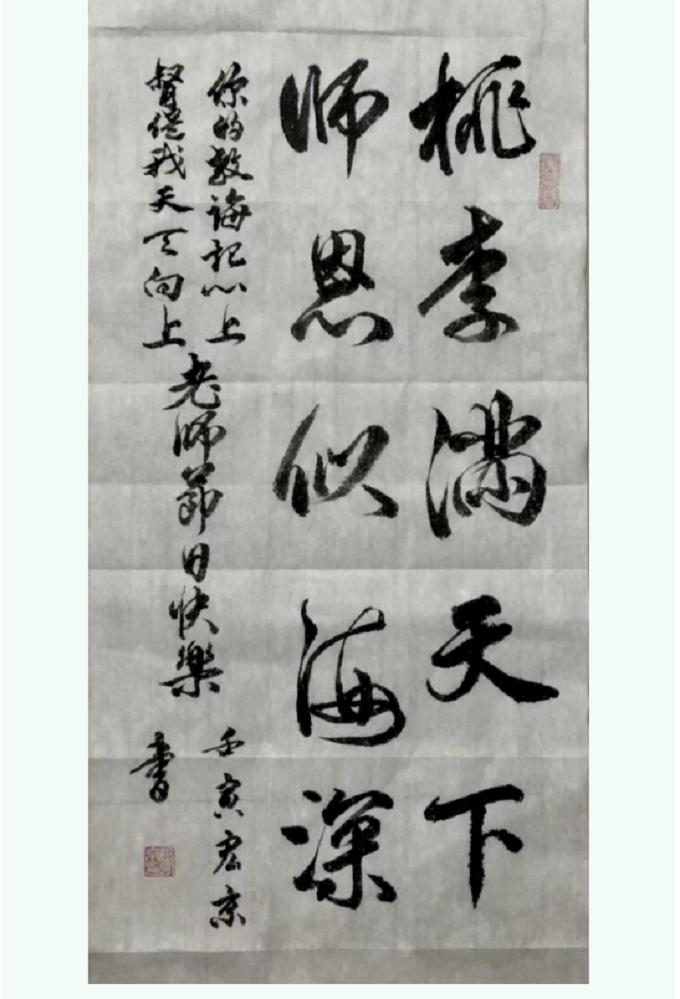 桃李满天下
师恩似海深
你的教诲记心上
督促我天天向上
老师节日快樂
壬寅宏京
書